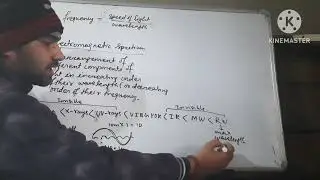 frequency = speed of light
wavelength
KINEMASTER
Electromagnetic Spectrum
arrangement of
different components of
in increasing order
their wavelength (or decreasing
order of their frequency.
Invisible
Invisible
< X-rays < UV-rays < VIBGYOR < IR < MW < RW
max
wavelength